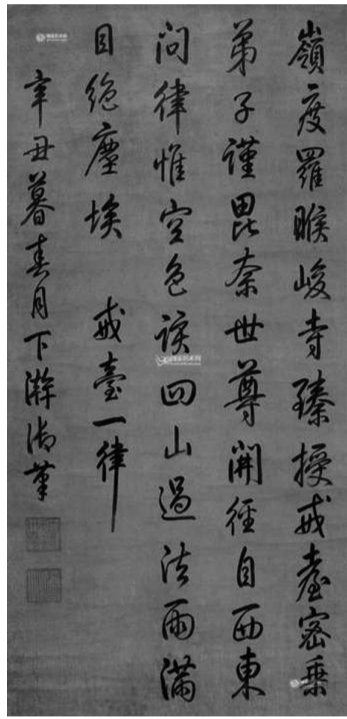 嶺度羅睺峻寺臻授戒臺密乘
弟子謹毘奈世尊開徑自西東
问律惟空色談回山過法雨滿
目絶塵埃 戒臺一律
辛丑暮春月下澣御筆